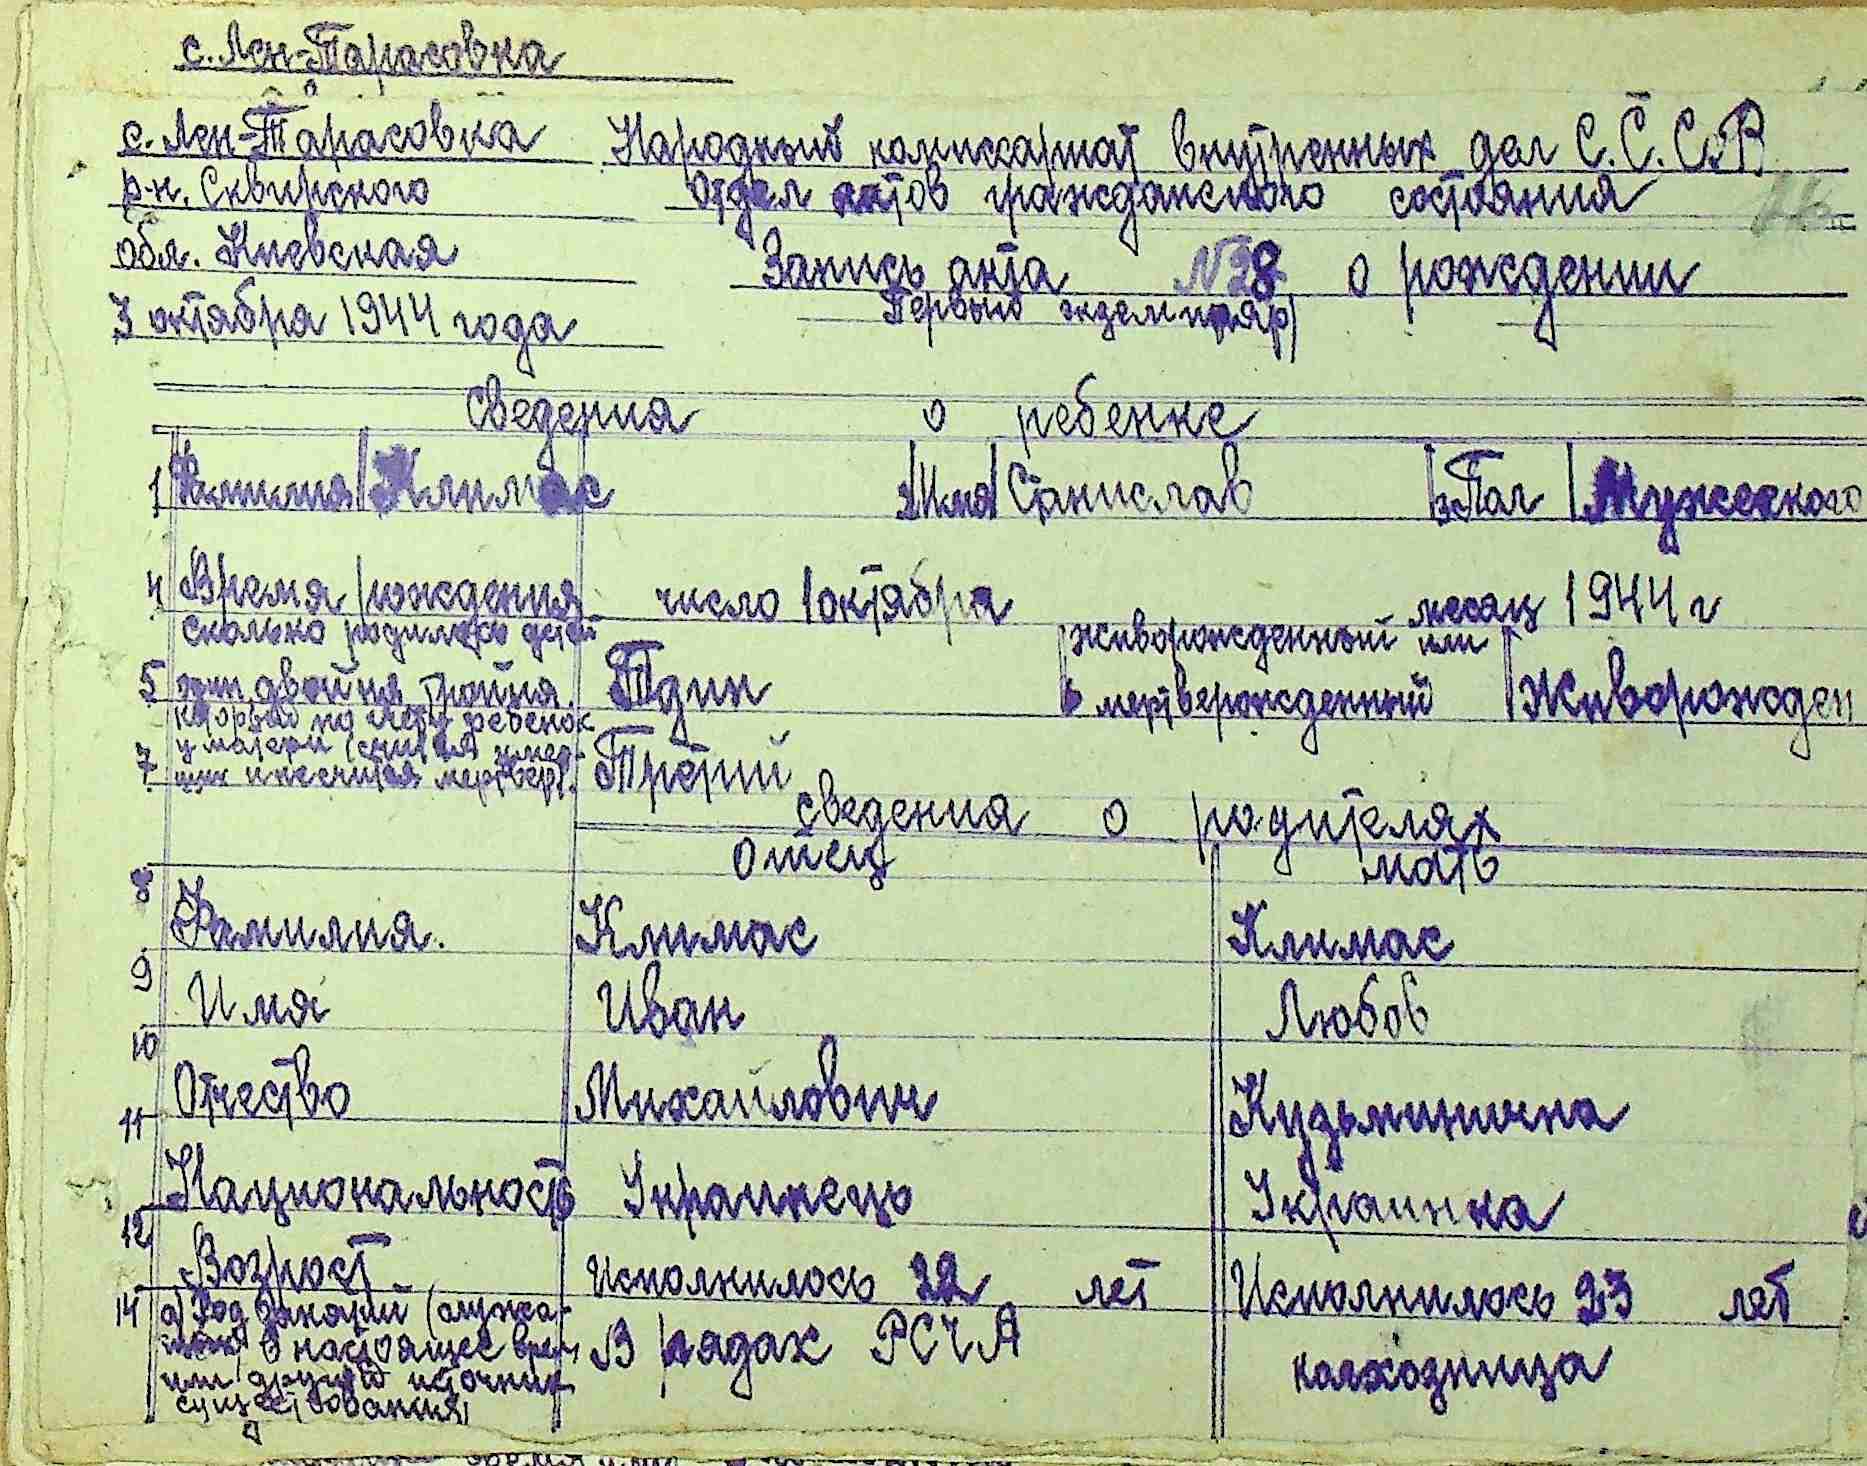 с. Лен-Тарасовка
с. Лен-Тарасовка Народный комиссариат внутренных дел С.С.С.Р
р-н. Сквирского отдел актов гражданского состояния
обл. Киевская Запись акта №28 о рождении
3 октября 1944 года Первый экземпляр
Сведения о ребенке
1 Фамилия Климас 2 Имя Станислав 3 Пол Мужеского
4 Время рождения число 1 октября месяц 1944 г
сколько родилось детей живорожденный или
5 один двойня тройня Один 6 мертверожденный Живорожден
который по счету ребенок
у матери (считая
7 Третий
сведения о родителях
отец мать
8 Фамилия. Климас Климас
9 Имя Иван Любов
10 Отчество Михайлович Кузьминична
11 Национальность Украинець Украинка
12 Возрост Исполнилось 32 лет Исполнилось 23 лет
14 а) Род занятий В рядах РСЧА колхозница
в настоящее врем
или другой источник
существования